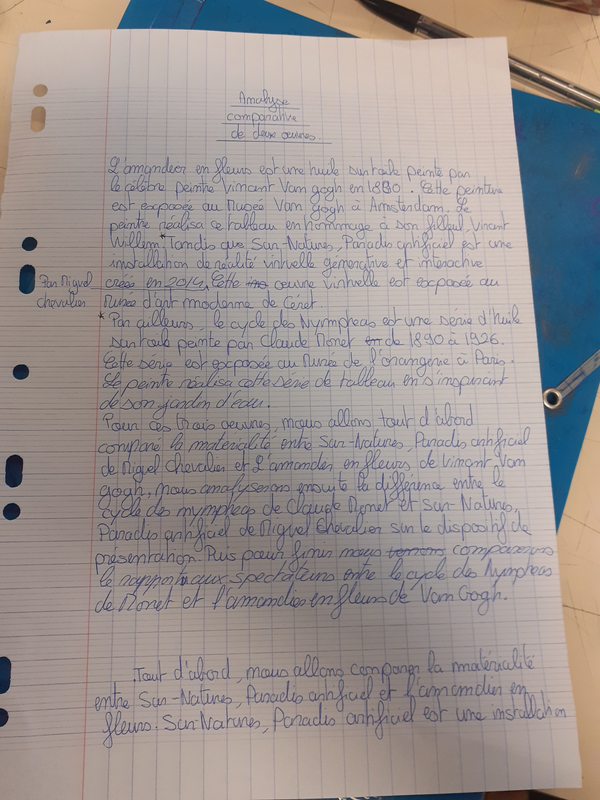 Analyse
comparative
de deux œuvres.
L'amandier en fleurs est une huile sur toile peinte par
le célèbre peintre vincent Van gogh en 1890. Cette peinture
est exposée au Museé Van gogh à Amsterdam. Le
peintre réalisa ce tableau en hommage à son filleul, Vincent
Willem.* Tandis que Sur-Natures, Paradis artificiel est une
installation de réalité virtuelle générative et interactive
Par Miguel chevalier
créée en 2014. Cette œuvre virtuelle est exposée au
Musée d'art moderne de Céret
* Par ailleurs, le cycle des Nympheas est une série d'huile
sur toile peinte par Claude Monet de 1890 à 1926.
Cette série est exposée au Musée de l'orangerie à Paris.
Le peintre réalisa cette série de tableau en s'inspirant
de son jardin d'eau.
Pour ces trois œuvres, nous allons, tout d'abord
comparé la materialité entre Sur-Natures, Paradis artificiel
de Miguel Chevalier et L'amandier en fleurs de vincent Van
gogh, nous analyserons ensuite la différence entre le
cycle des nympheas de Claude Monet et Sur-Natures,
Paradis artificiel de Miguel Chevalier sur le dispositif de
présentation. Puis pour finir nous comparerons
le rapport aux spectateurs entre le cycle des Nympheas
de Monet et l'amandier en fleurs de Van Gogh.
Tout d'abord, nous allons comparer la matérialité
entre Sur-Natures, Paradis artificiel et l'amandier en
fleurs. Sur-Natures, Paradis artificiel est une installation